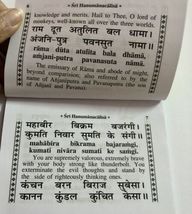 Śrī Hanumānacālīsā
knowledge and merits. Hail to Thee, O lord of
monkeys, well-known all over the three worlds.
राम दूत अतुलित बल धामा ।
अंजनि-पुत्र पवनसुत नामा ॥
rāma dūta atulita bala dhāmā,
aṁjani-putra pavanasuta nāmā.
The emissary of Rāma and abode of might,
beyond comparision, also referred to by the
name of Añjanīputra and Pavanaputra (the son
of Añjanī and Pavana).
Śrī Hanumānacālīsā 7
महाबीर बिक्रम बजरंगी ।
कुमति निवार सुमति के संगी ॥
mahābīra bikrama bajaraṁgī,
kumati nivāra sumati ke saṁgī.
You are supremely valorous, extremely brave
with your body strong like thunderbolt. You
exterminate the evil thoughts and stand by
the side of righteously thinking ones.
कंचन बरन बिराज सुबेसा ।
कानन कुंडल कुंचित केसा ॥